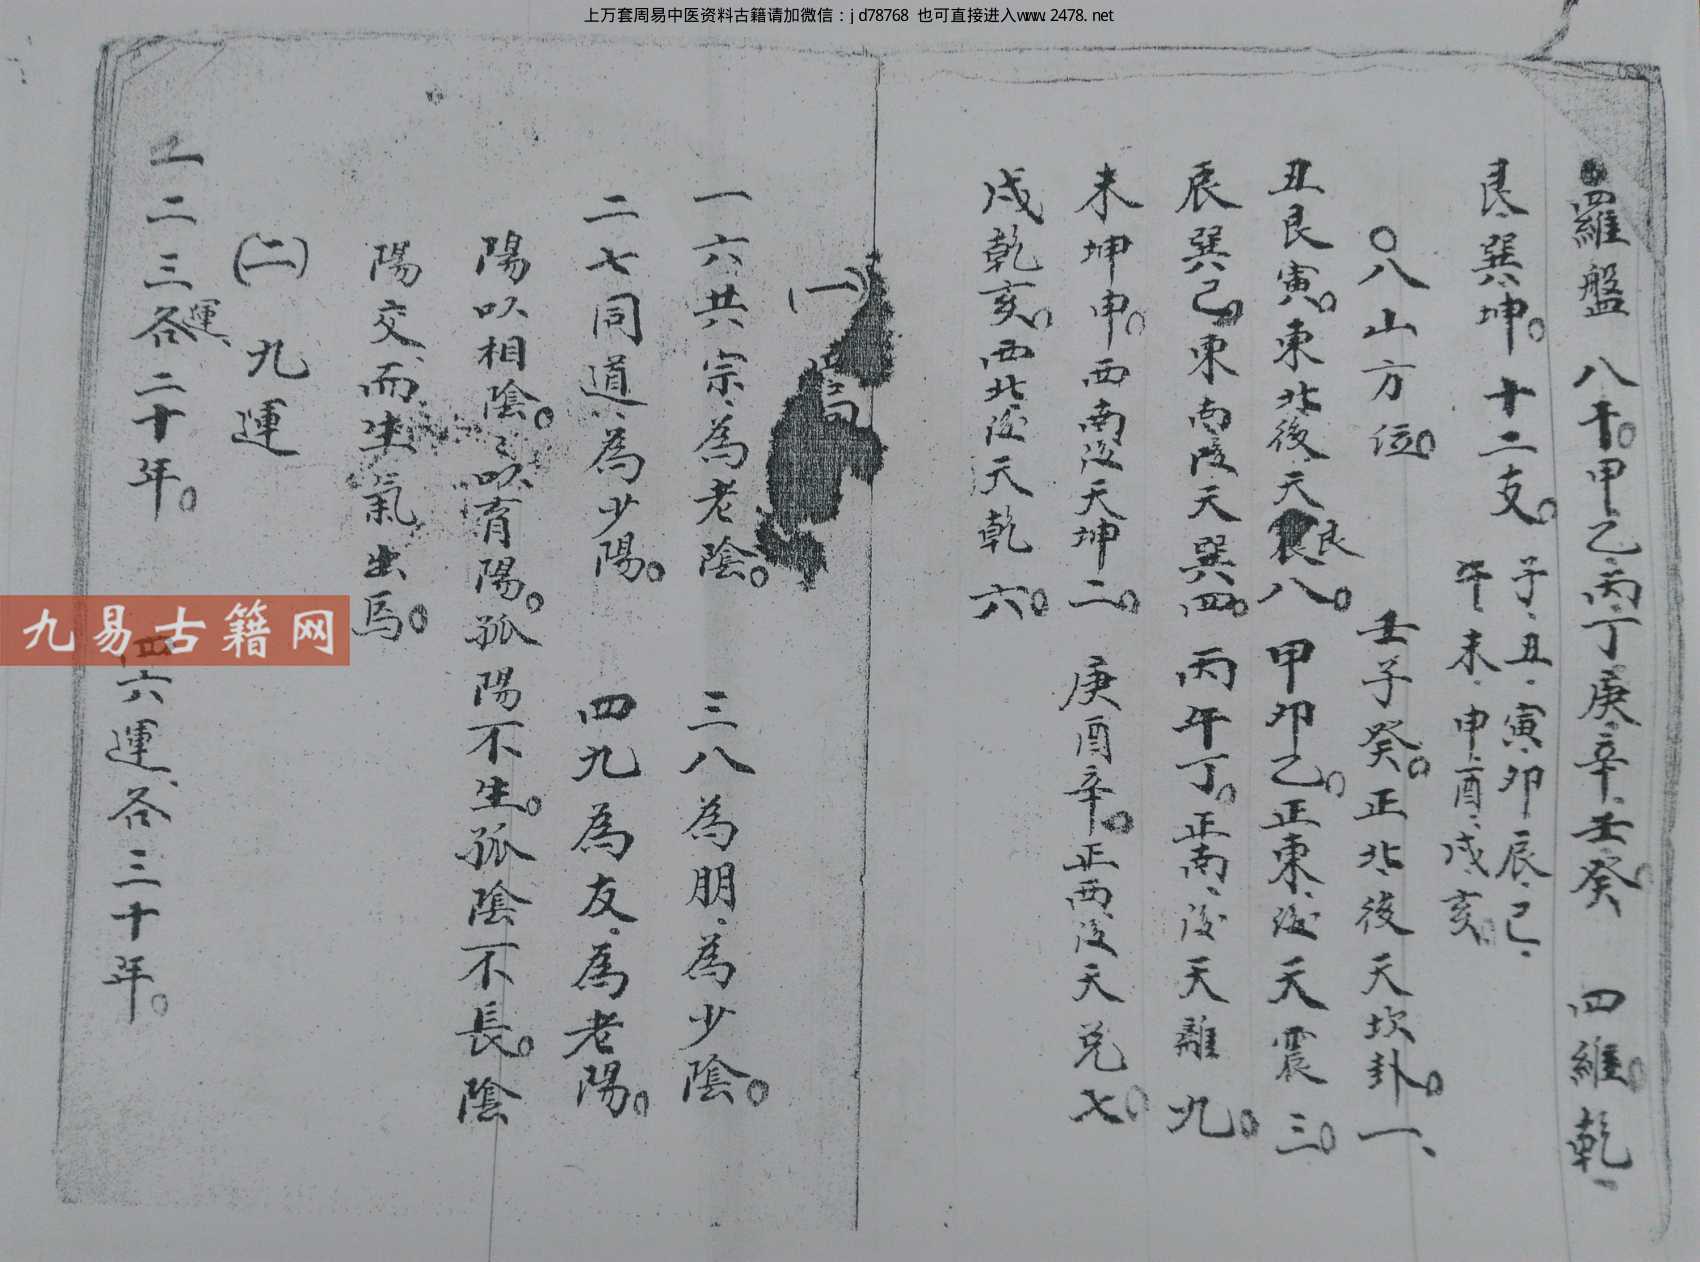 上万套周易中医资料古籍请加微信：jd78768 也可直接进入www.2478.net
羅盤 八干。甲、乙、丙、丁、庚、辛、壬、癸 四維。乾、
艮、巽、坤。十二支。子、丑、寅、卯、辰、巳、
午、未、申、酉、戌、亥。
○八山方位。 壬子癸。正北、後天坎卦。一、
丑艮寅。東北後天艮八。 甲卯乙。正東、後天震三。
辰巽巳。東南後天巽四。 丙午丁。正南、後天離九。
未坤申。西南後天坤二。 庚酉辛。正西後天兌七。
戌乾亥。西北後天乾六。
(一)
一六共宗、為老陰。 三八為朋、為少陰。
二七同道、為少陽。 四九為友、為老陽。
陽以相陰。陰以育陽。孤陽不生。孤陰不長。陰
陽交、而生氣出焉。
(二) 九運
一二三運、各二十年。 四六運、各三十年。
九易古籍网